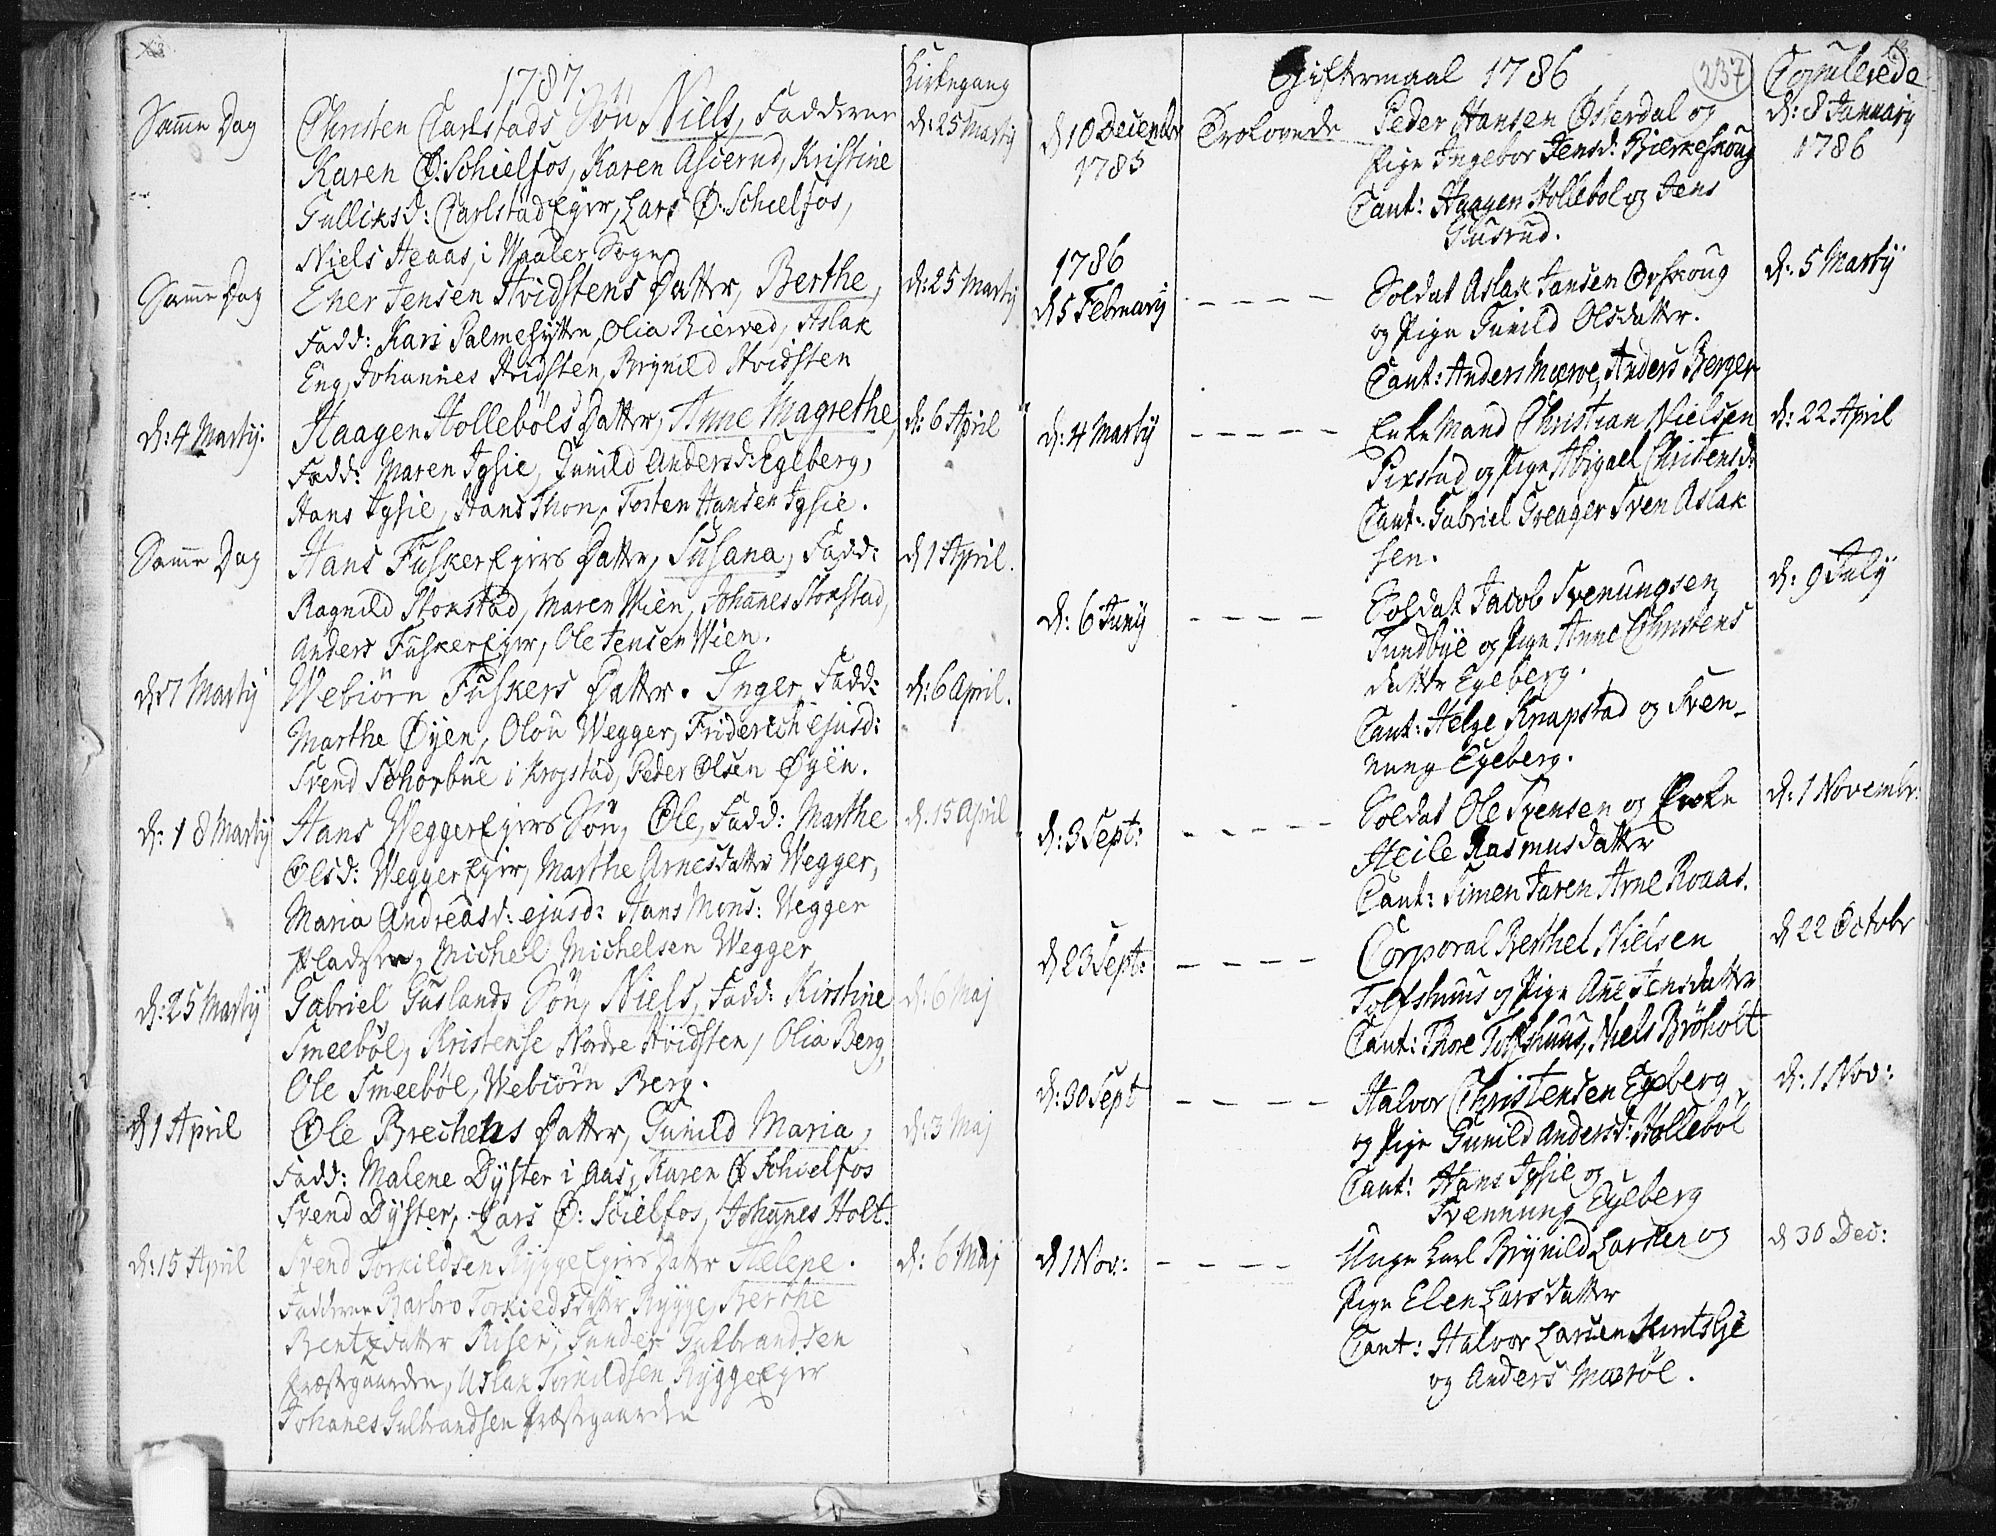 1787.
Kirkegang
Samme Dag
Christen Carlstads Søn Niels, Faddere
d: 25 Martij
Karen Ø: Schielfos, Karen Ascierud, Kristine
Gulliksd: Carlstad Eger, Lars Ø: Schielfos,
Niels Heaas, i Waaler Sogn
Samme Dag
Ener Jensen Hvidstens Datter, Berthe,
d: 25 Martij
Fadd: Kari Palmehytten, Olia Bierved, Aslak
Eng, Johannes Hvidsten, Brynild Hvidsten
d: 4 Martij.
Haagen Hollebøls Datter, Anne Magrethe,
d: 6 April
Fadd: Maren Igsie, Gunild Andersd: Egeberg,
Hans Igsie, Hans Mon, Torsten Hansen Igsie.
Samme Dag
Hans Fusker Egers Datter, Susana, Fadd:
d 1 April.
Ragnild Stokstad, Maren Wien, Johannes Stokstad,
Anders Fusker Eger, Ole Jensen Wien.
d 7 Martij
Webiørn Fuskers Datter. Inger, Fadd:
d: 6 April.
Marthe Øyen, Olou Wegger, Friderich ejusd:
Svend Schorbue i Krogstad, Peder Olsen Øyen.
d: 18 Martij
Hans Wegger Egers Søn, Ole, Fadd: Marthe
d. 15 April
Olsd: Wegger Eger, Marthe Arnesdatter Wegger,
Maria Andreasd: ejusd: Hans Mons: Wegger
Pladsen, Michel Michelsen Wegger
d: 25 Martij
Gabriel Guslands Søn, Niels, Fadd: Kirstine
d: 6 Maj
Smeebøl, Kristense Nordre Hvidsten, Olia Berg,
Ole Smeebøl, Webiørn Berg.
d 1 April
Ole Brechens Datter, Gunild Maria,
d: 3 Maj
Fadd: Malene Dyster i Aas, Karen Ø Schielfos
Svend Dyster, Lars Ø: Scielfos, Johannes Holt.
d: 15 April
Svend Torkildsen Rygge Egers Datter Helene.
d: 6 Maj
Faddere Barbro Torkieldsdatter Rygge, Berthe
Bentzdatter Riser, Gunder Gulbrandsen
Præstegaarden, Aslak Torkildsen Rygge Eger
Johanes Gulbrandsen Præstegaarden
Giftermaal 1786
237
Copulerede
d 10 December
1785
Trolovede
Peder Hansen Østerdal og
d: 8 January
1786
Pige Ingebor Jensd: Bierkeskoug
Caut: Haagen Hollebøl og Jens
Gusrud.
1786
d 5 February
Soldat Aslak Jansen Ørskoug
d: 5 Martij
og Pige Gunild Olsdatter.
Caut: Anders Mørve, Anders Berger
d: 4 Martij
Enke Mand Christian Nielsen
d: 22 April
Pixstad og Pige Abigael Christensd:
Caut: Gabriel Greager Sven Aslak
sen.
d: 6 Juny
Soldat Jacob Svenungsen
d: 9 July
Sundbye og Pige Anne Christens
datter Egeberg.
Caut: Helge Knapstad og Sven-
nung Egeberg.
d: 3 Sept:
Soldat Ole Svensen og Enke
d: 1 Novembr:
Heile Rasmusdatter
Caut: Simen Jaren Arne Roaas.
d 23 Sept:
Corporal Berthel Nielsen
d 22 Octobr
Tolfshuus og Pige Anne Jensdatter
Caut: Thore Tolfshuus, Niels Brøholt
d: 30 Sept
Halvor Christensen Egeberg
d: 1 Nov:
og Pige Gunild Andersd: Hollebøl
Caut: Hans Igsie og
Svennung Egeberg
d 1 Nov:
Unge Karl Brynild Larsen og
d 30 Dec:
Pige Elen Larsdatter
Caut: Halvor Larsen
og Anders